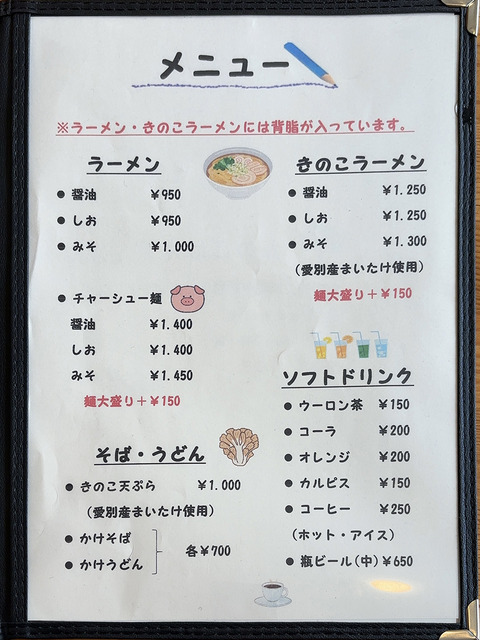 メニュー
※ラーメン・きのこラーメンには背脂が入っています。
ラーメン
● 醤油 ¥950
● しお ¥950
● みそ ¥1.000
● チャーシュー麺
醤油 ¥1.400
しお ¥1.400
みそ ¥1.450
麺大盛り+¥150
そば・うどん
● きのこ天ぷら ¥1.000
(愛別産まいたけ使用)
● かけそば
● かけうどん
各¥700
きのこラーメン
● 醤油 ¥1.250
● しお ¥1.250
● みそ ¥1.300
(愛別産まいたけ使用)
麺大盛り+¥150
ソフトドリンク
● ウーロン茶 ¥150
● コーラ ¥200
● オレンジ ¥200
● カルピス ¥150
● コーヒー ¥250
(ホット・アイス)
● 瓶ビール(中) ¥650